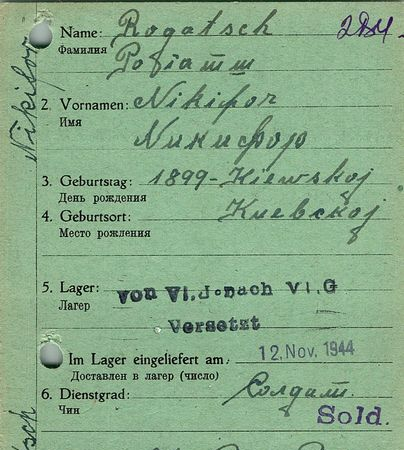 Name: Rogatsch
Фамилия
2. Vornamen: Nikifor
Имя
Никифор
3. Geburtstag: 1899 - Kiewskoj
День рождения
4. Geburtsort: Киевской
Место рождения
5. Lager: von VI.J. nach VI.G
Лагер
Versetzt
Im Lager eingeliefert am: 12. Nov. 1944
Доставлен в лагер (число)
6. Dienstgrad: Солдат
Чин
Sold.
Nikifor